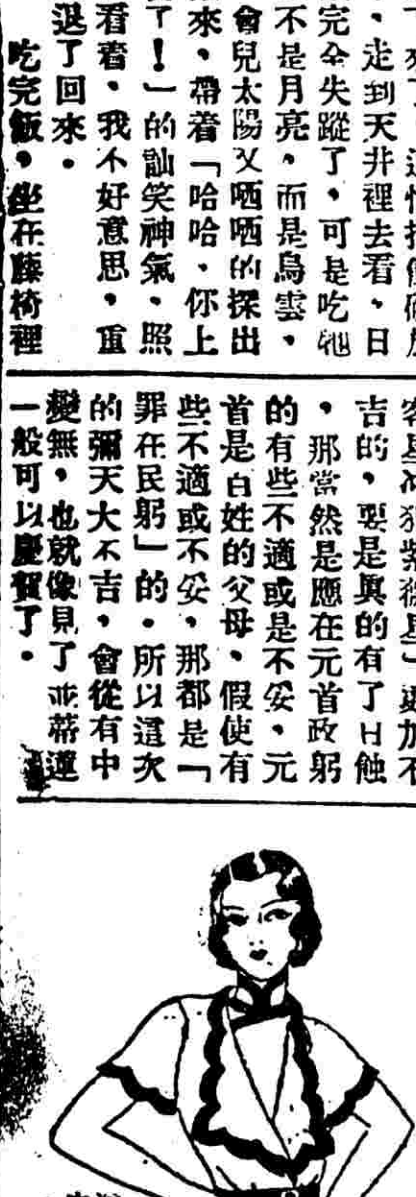 ，走到天井裡去看，日
完全失蹤了，可是吃他
不是月亮，而是烏雲，
會兒太陽又哂哂的探出
來，帶着「哈哈，你上
了！」的訕笑神氣，照
看着，我不好意思，重
退了回來。
吃完飯，坐在藤椅裡
客星冲犯紫微星」更加不
吉的，要是眞的有了日蝕
，那當然是應在元首政躬
的有些不適或是不妥，元
首是百姓的父母，假使有
些不適或不妥，那都是「
罪在民躬」的，所以這次
的彌天大不吉，會從有中
變無，也就像見了並蒂蓮
一般可以慶賀了。